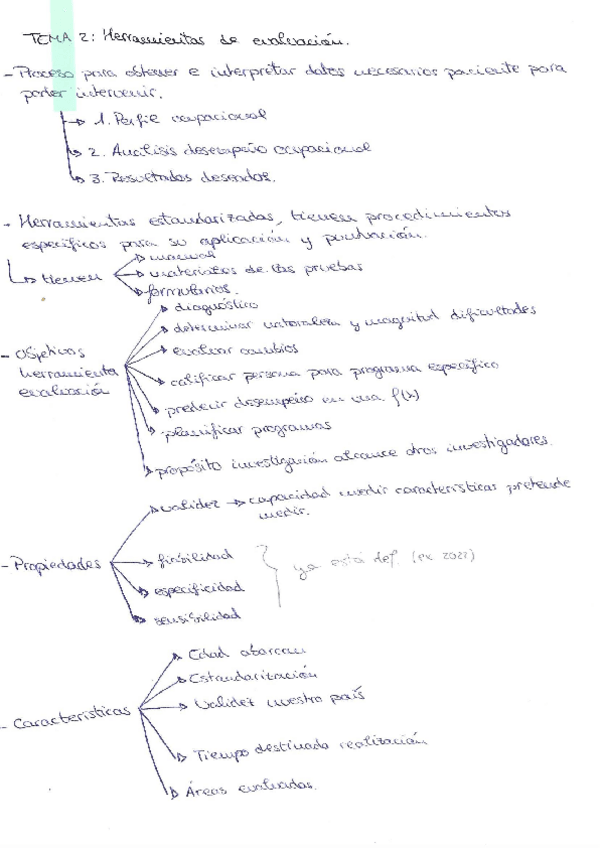 TEMA 2: Herramientas de evaluación.
- Proceso para obtener e interpretar datos necesarios paciente para
poder intervenir.
1. Perfil ocupacional
2. Análisis desempeño ocupacional
3. Resultados deseados.
- Herramientas estandarizadas, tienen procedimientos
específicos para su aplicación y puntuación.
manual
tienen
materiales de las pruebas
formularios.
diagnóstico
determinar naturaleza y magnitud dificultades
- Objetivos
herramienta
evaluación
evaluar cambios
calificar persona para programa específico
predecir desempeño en una f(x)
planificar programas
propósito investigación alcance otros investigadores.
validez → capacidad medir características pretende
medir.
- Propiedades
fiabilidad
especificidad
sensibilidad
ya está def. (ex 2022)
- Características
Edad abarcan
Estandarización
Validez nuestro país
Tiempo destinado realización
Áreas evaluadas.